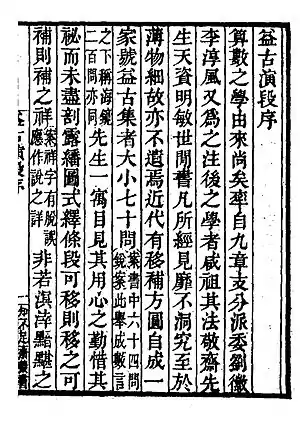 益古演段序
算數之學由來尚矣率自九章支分派委劉徽
李淳風又爲之注後之學者咸祖其法敬齋先
生天資明敏世間書凡所經見靡不洞究至於
薄物細故亦不遺焉近代有移補方圓自成一
家號益古集者大小七十問案書中六十四問銳案此舉成數言
之下稱海鏡二百問亦同先生一寓目見其用心之勤惜其
祕而未盡剖露繙圖式繹條段可移則移之可
補則補之祥案祥字有脫誤應作說之詳非若溟涬黯黮之
益古演段序 一 知不足齋叢書